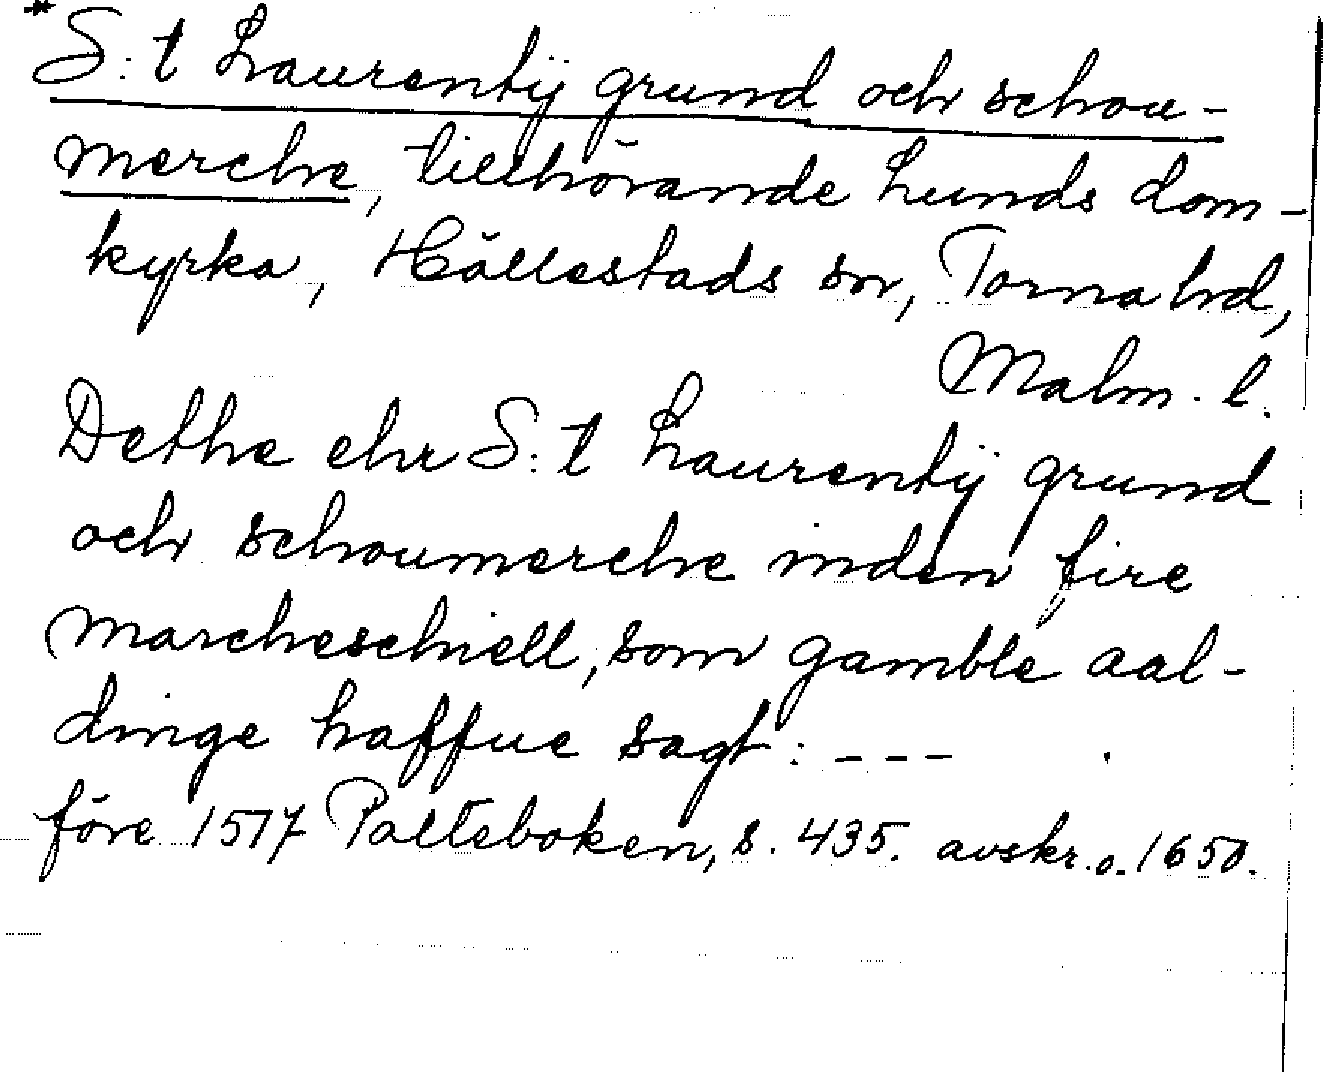 *
S:t Laurentÿ grund och schou-
merche, tillhörande Lunds dom-
kyrka, Hällestads sn, Torna hd,
Malm. l.
Dethe ehr S:t Laurentÿ grund
och schoumerche inden fire
marcheschiell, som gamble aal-
dinge haffue sagt: ---
före 1577 Palteboken, s. 435. avskr. o. 1650.